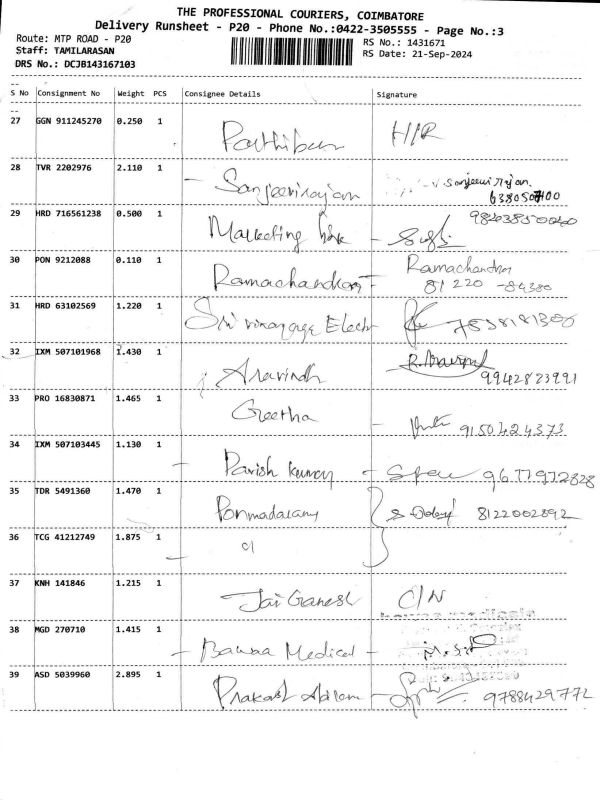 THE PROFESSIONAL COURIERS, COIMBATORE
Delivery Runsheet - P20 - Phone No.:0422-3505555 - Page No.:3
Route: MTP ROAD - P20
RS No.: 1431671
Staff: TAMILARASAN
RS Date: 21-Sep-2024
DRS No.: DCJB143167103
S No Consignment No Weight PCS Consignee Details Signature
27 GGN 911245270 0.250 1 Parthiban H/R
28 TVR 2202976 2.110 1 Sanjeevirajan V. Sanjeevi rajan.
29 HRD 716561238 0.500 1 Marketing
30 PON 9212088 0.110 1 Ramachandran Ramachandran
81220 -84380
31 HRD 63102569 1.220 1 Sri vinayaga Elect
32 IXM 507101968 1.430 1 Aravindh
9942823991
33 PRO 16830871 1.465 1 Geetha 9150424373
34 IXM 507103445 1.130 1 Parish Kumar 9677972828
35 TDR 5491360 1.470 1 8122002892
36 TCG 41212749 1.875 1
37 KNH 141846 1.215 1 Jai Ganesh C/N
38 MGD 270710 1.415 1 Bawaa Medical
39 ASD 5039960 2.895 1 Prakash 9788429772